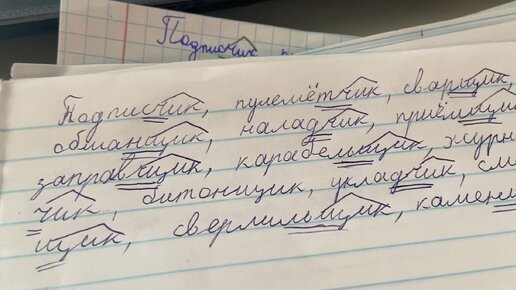 Подписчик
Подписчик, пулемётчик, сварщик,
обманщик, наладчик, приёмщик
заправщик, карабельщик, журн
чик, битонщик, укладчик,
щик, сверлильщик, камен